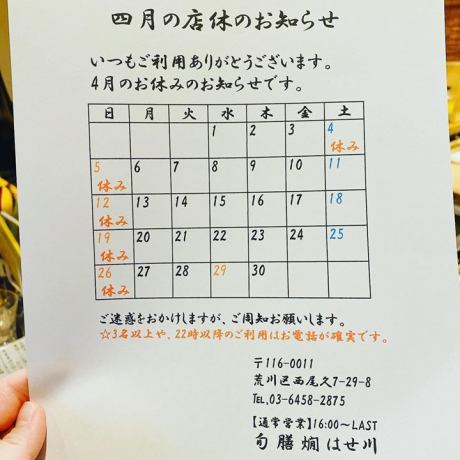 四月の店休のお知らせ
いつもご利用ありがとうございます。
4月のお休みのお知らせです。
日 月 火 水 木 金 土
1 2 3 4
休み
5 6 7 8 9 10 11
休み
12 13 14 15 16 17 18
休み
19 20 21 22 23 24 25
休み
26 27 28 29 30
休み
ご迷惑をおかけしますが、ご周知お願いします。
☆3名以上や、22時以降のご利用はお電話が確実です。
〒116-0011
荒川区西尾久7-29-8
TEL,03-6458-2875
【通常営業】16:00～LAST
旬膳燗はせ川